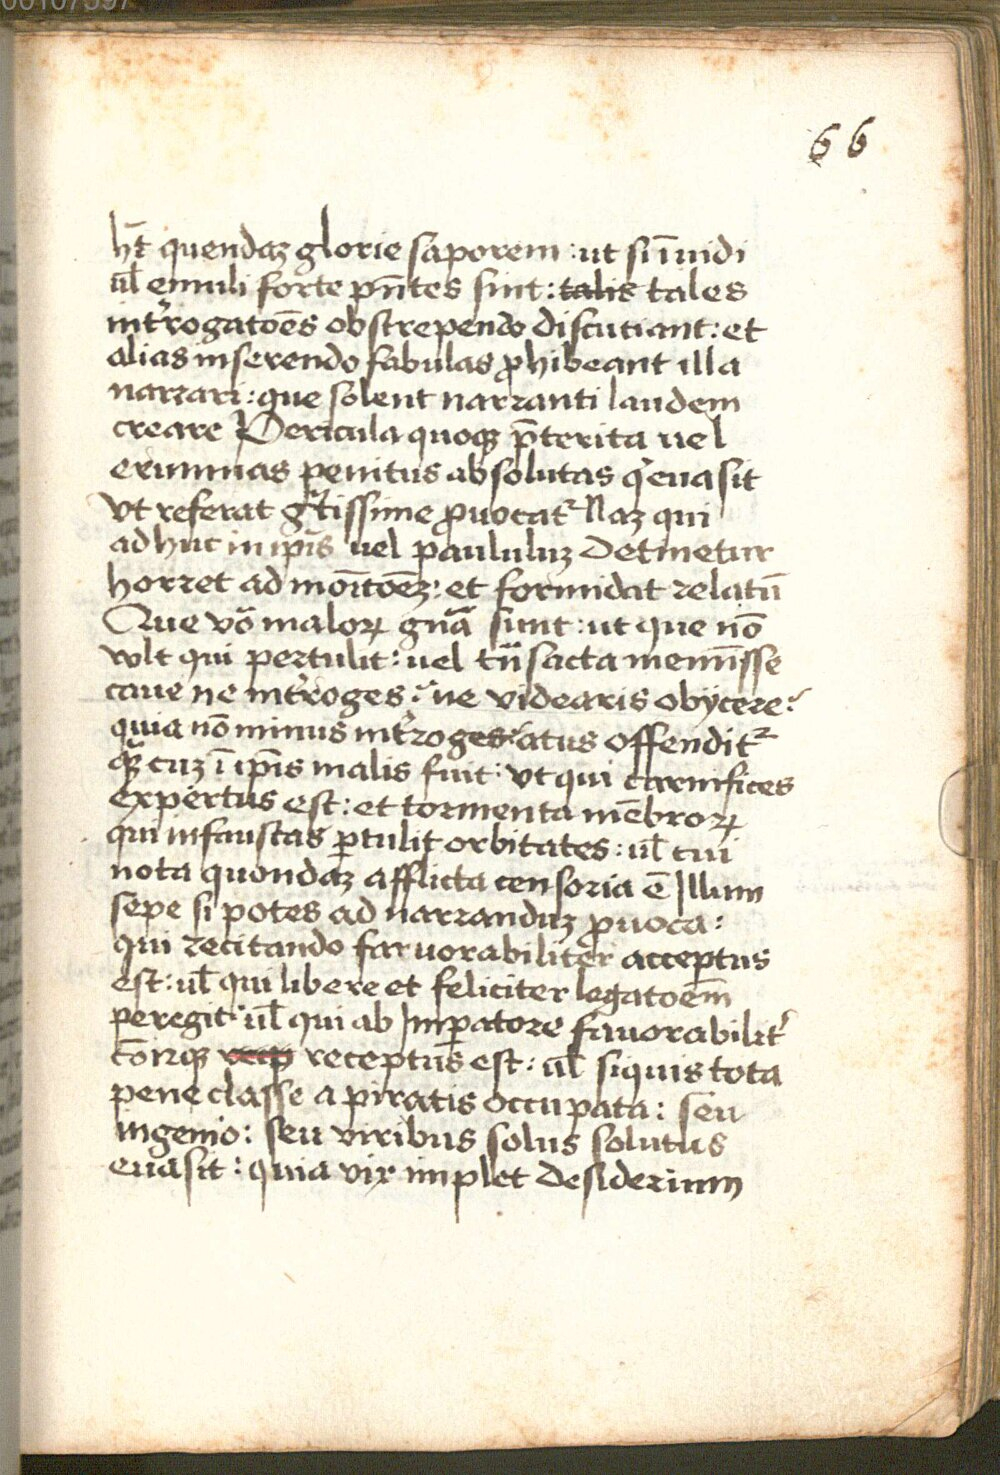 66
hr̄t quendaꝫ glorie saporem : ut si ī uidi
ul̄ emuli forte pn̄tes sint : talis tales
int̓rogatoēs obstrependo discutiant : et
alias inserendo fabulas ꝓhibeant illa
narrari : que solent narranti laudem
creare Pericula quoqꝫ p̄terita uel
erumnas penitus absolutas q̓ euasit
Vt referat gr̄tissime ꝓuocat᷑ Naꝫ qui
adhuc in ip̄is uel paululuꝫ detinetur
horret ad moītoēꝫ : et formidat relatū
Que vō maloꝝ gn̄a sunt : ut que nō
vult qui pertulit : uel trn̄sacta memīsse
caue ne int̓roges : ne videaris obijcere :
quia nō minus int̓rogatus offendit᷑
qꝫ cuꝫ ī ip̄is malis fuit : Vt qui carnifices
expertus est : et tormenta mēbroꝝ
qui infaustas ꝑtulit orbitates : ul̄ cui
nota quondaꝫ afflicta censoria ē Illum
sepe si potes ad narranduꝫ ꝓuoca :
qui recitando faruorabiliter acceptus
est : ul̄ qui libere et feliciter legatoēm
peregit : ul̄ qui ab Imꝑatore fauorabilit̓
comīqꝫ receptus est : ul̄ siquis tota
pene classe a piratis occupata : seu
ingenio : seu viribus solus solutus
euasit : quia vix implet desiderium